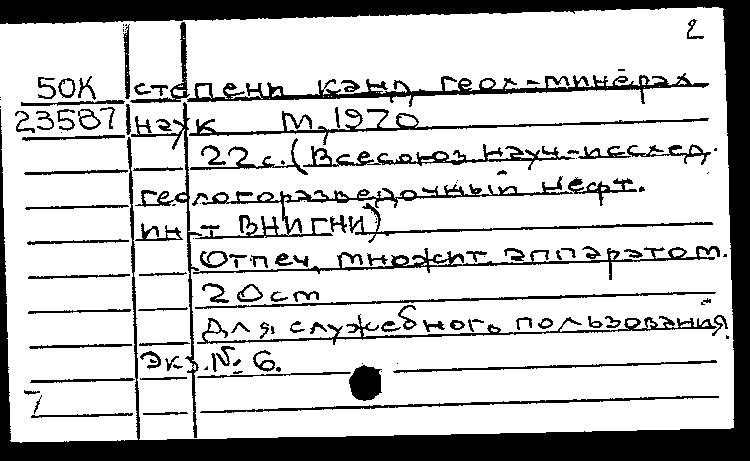 2
50К степени канд. геол-минерал
23587 наук М, 1970
22с. (Всесоюз науч-исслед.
геологоразведочный нефт.
ин-т ВНИГНИ).
Отпеч. множит. аппаратом.
20cm
Для служебного пользования.
Экз. № 6.